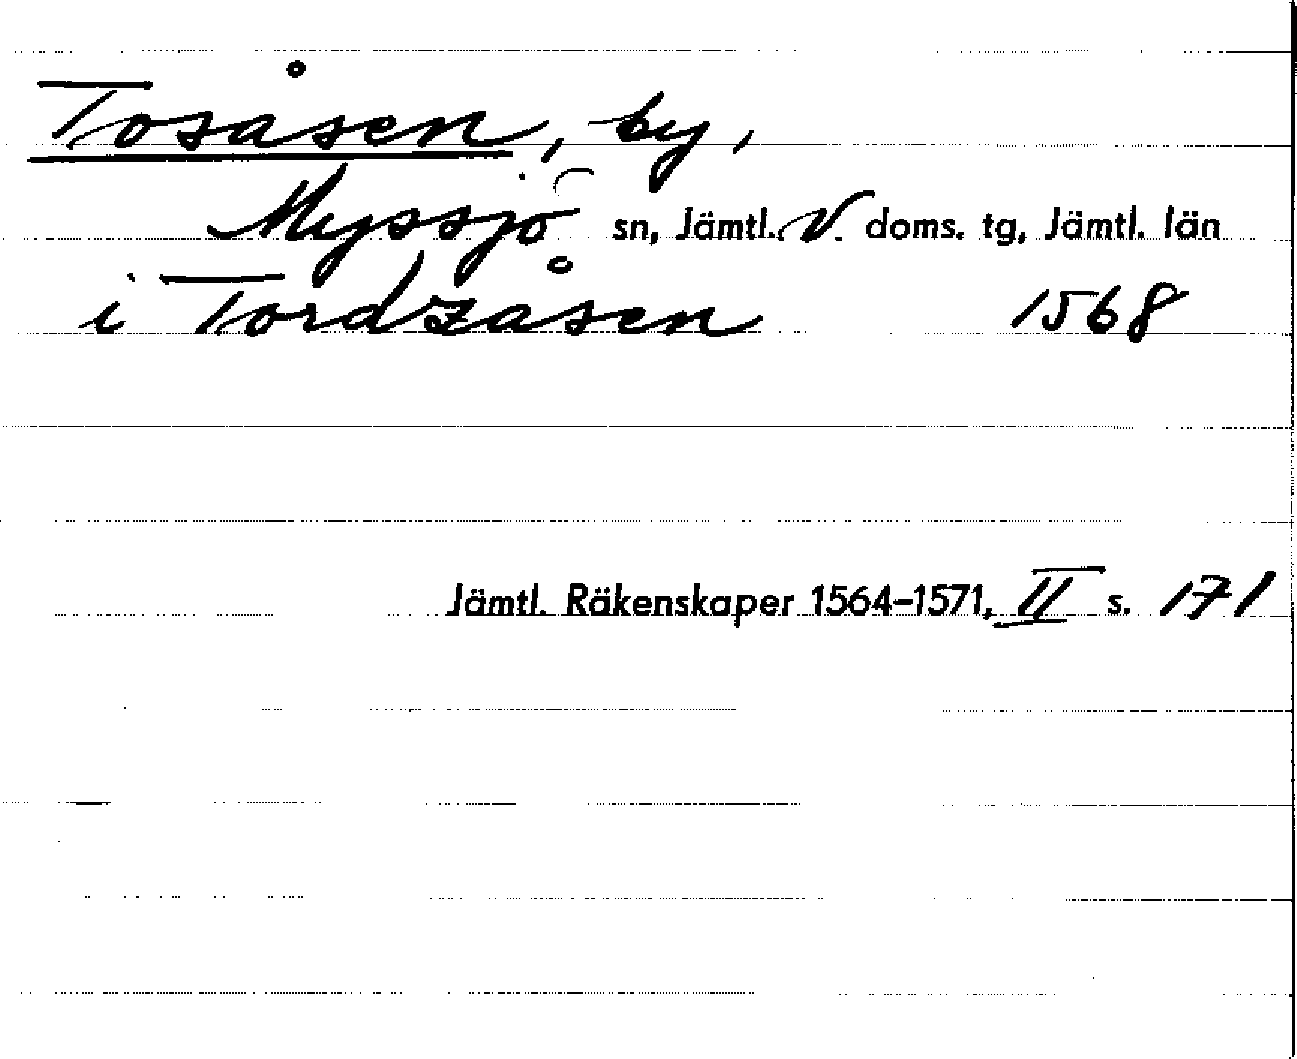 Tosåsen, by,
Myssjö sn, Jämtl. V. doms. tg, Jämtl. län
i Tordzåsen 1568
Jämtl. Räkenskaper 1564-1571, II s. 171